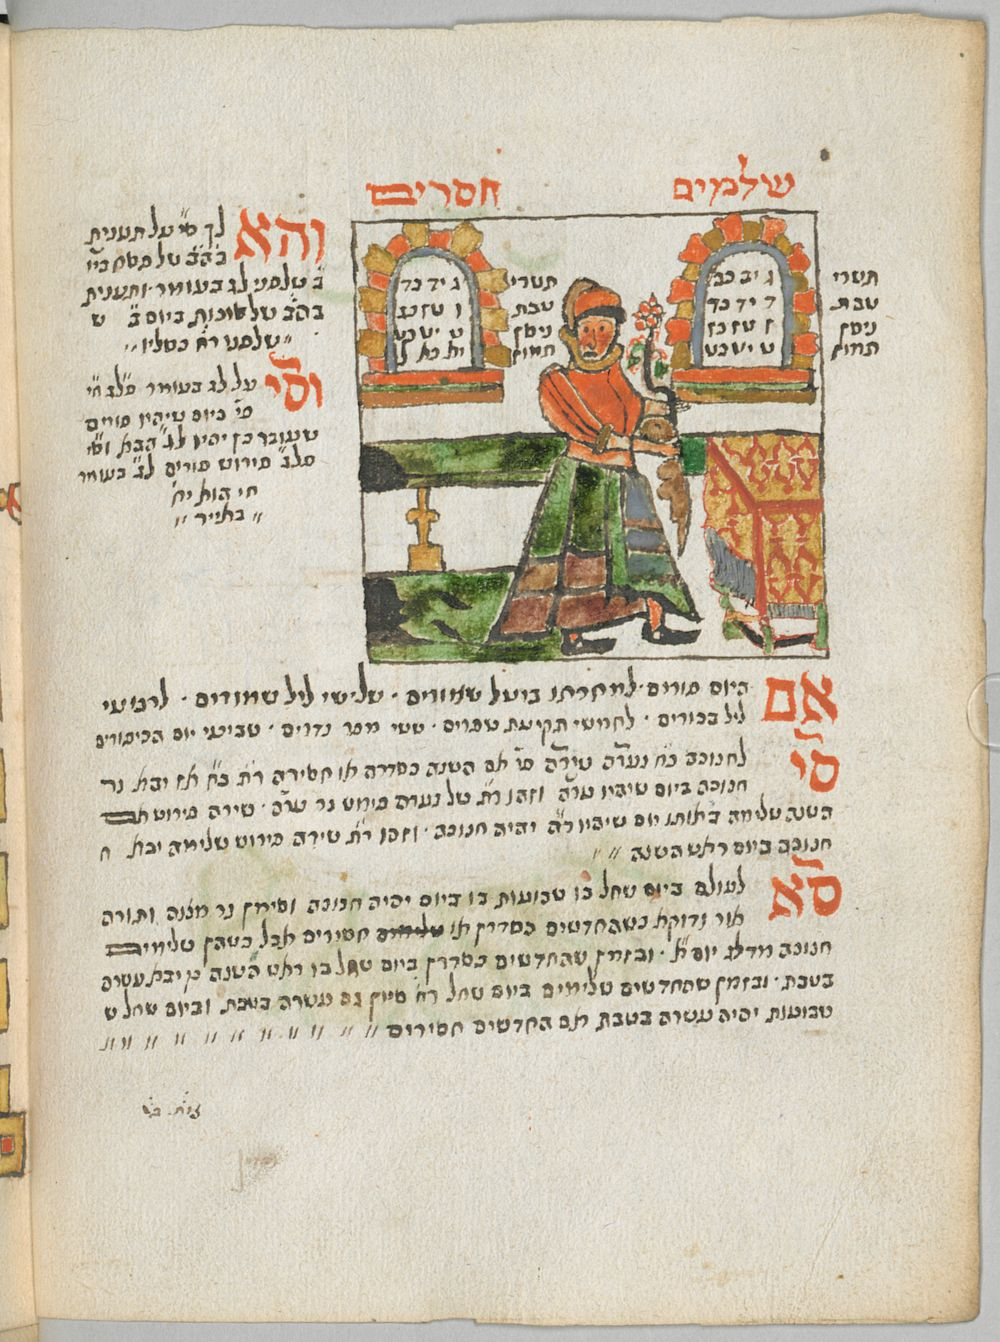 שלמים
חסרים
ג יב כב
ד יד כד
ז טז כז
ט יש כט
תשרי
טבת
ניסן
תמוז
ג יד כד
ו טז כב
ט יש כט
יא כא ל
תשרי
טבת
ניסן
תמוז
והא לך סי על תענית
בהב של פסח ביו
ב שלפני לג בעומר ותענית
בהב של סוכות ביום ב ש
שלפני רח כסליו
וסי על לג בעומר פלג חי
פי ביום שיהיו פורים
שעובר כן יהיו לג הבא וסי
פלג פירוש פורים לג בעומר
חי הות יח
באייר
אם היום פורים למחרתו ביעל שמורים שלישי ליל שמורים לרביעי
ליל בכורים לחמישי תקיעת שפרים ששי מפר נדרים שביעי יום הכיפורים
סי לחנוכה כח נערה שירה פי אם השנה כסדרה או חסירה רת כח אז יבא נר
חנוכה ביום שיהיו ערה וזהו רת של נערה פירוש נר ערה שירה פירוש אם
השנה שלימה באותו יום שיהיו רה יהיה חנוכה וזהו רת שירה פירוש שלימה יבא ח
חנוכה ביום ראש השנה
סא לעולם ביום שחל בו שבועות בו ביום יהיה חנוכה וסימן נר מצוה ותורה
אור ודוקא כשהחדשים כסדרן או חסירים אבל כשהן שלימים
חנוכה מדלג יום א ובזמן שהחדשים כסדרן ביום שחל בו ראש השנה כן יבא עשרה
בטבת ובזמן שהחדשים שלימים ביום שחל רח סיון גם עשרה בטבת וביום שחל ש
שבועות יהיה עשרה בטבת אם החדשים חסירים